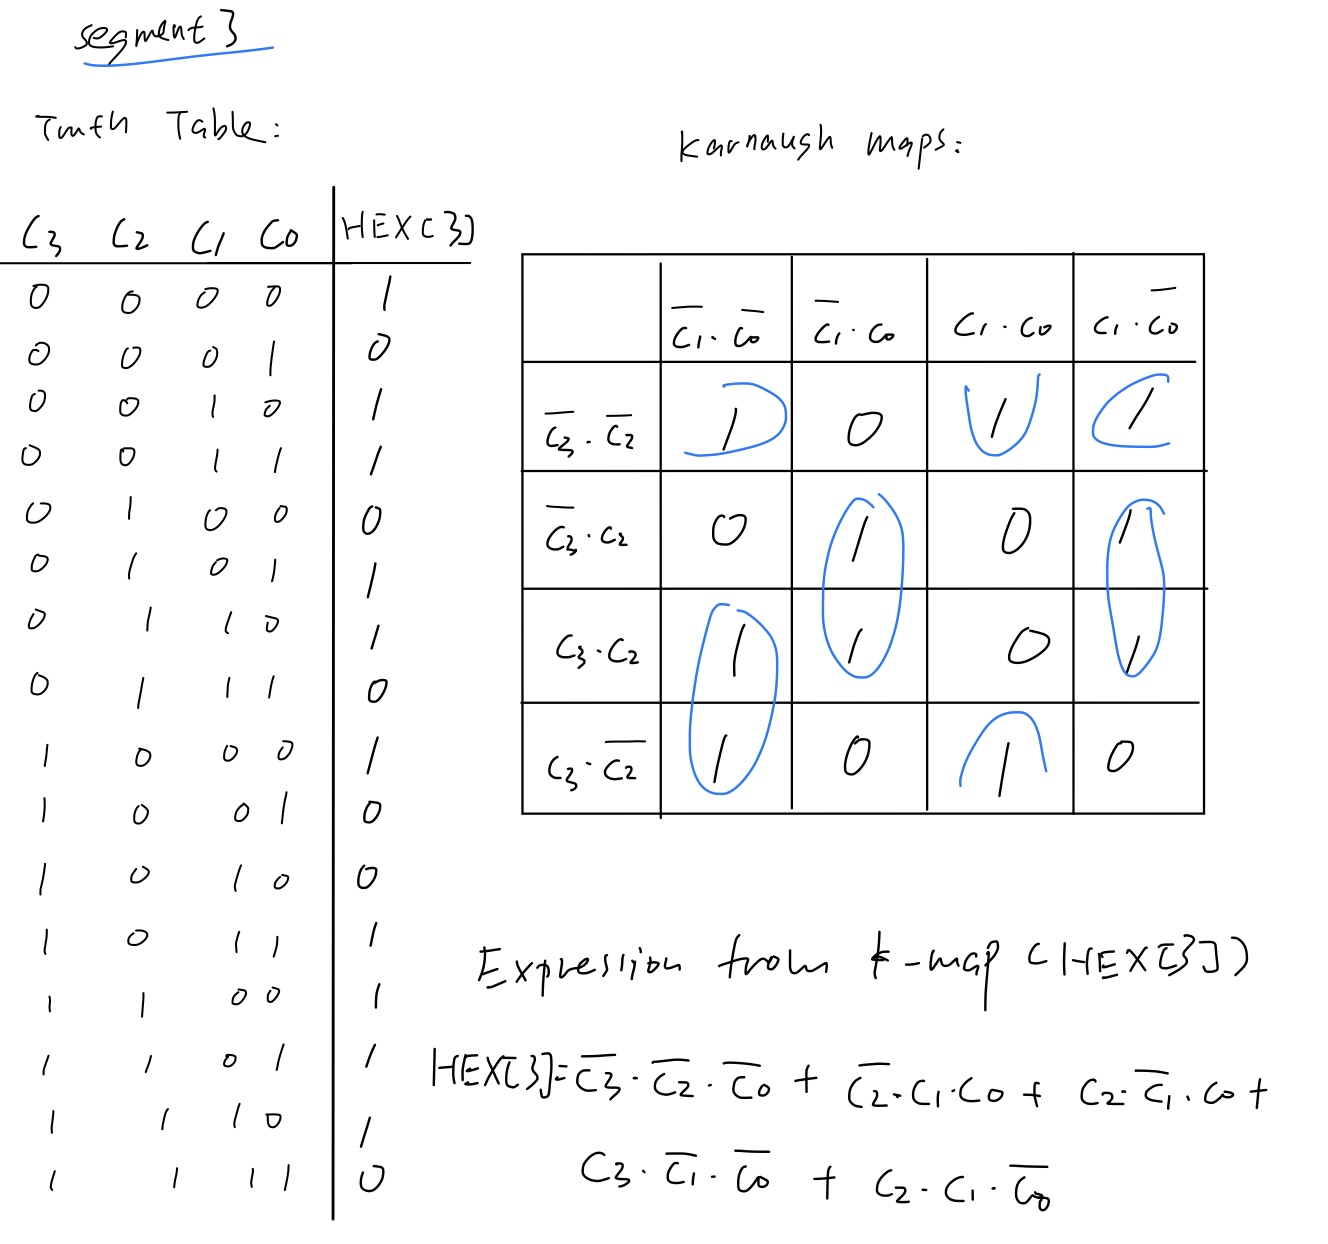 segment 3
Truth Table:
C3 C2 C1 C0 HEX[3]
0 0 0 0 1
0 0 0 1 0
0 0 1 0 1
0 0 1 1 1
0 1 0 0 0
0 1 0 1 1
0 1 1 0 1
0 1 1 1 0
1 0 0 0 1
1 0 0 1 0
1 0 1 0 0
1 0 1 1 1
1 1 0 0 1
1 1 0 1 1
1 1 1 0 1
1 1 1 1 0
Karnaugh maps:
C̅1·C̅0 C̅1·C0 C1·C0 C1·C̅0
C̅3·C̅2 1 0 1 1
C̅3·C2 0 1 0 1
C3·C2 1 1 0 1
C3·C̅2 1 0 1 0
Expression from k-map (HEX[3])
HEX[3]=C̅3·C̅2·C̅0 + C̅2·C1·C0 + C2·C̅1·C0 +
C3·C̅1·C̅0 + C2·C1·C̅0